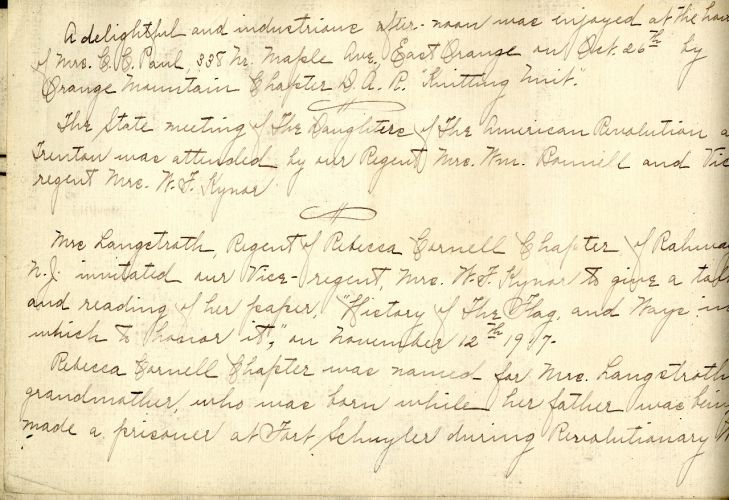 A delightful and industrious after-noon was enjoyed at the
of Mrs. C. C. Paul, 338 Nr. Maple Ave, East Orange on Oct. 26th by
Orange Mountain Chapter D. A. R. "Knitting Unit".
The State meeting of The Daughters of The American Revolution
Trenton was attended by our Regent Mrs. Wm. Bonnell and
regent Mrs. W. F. Kynor
Mrs Langstroth, Regent of Rebecca Cornell Chapter of Rahway
N.J. invitated our Vice-regent, Mrs. W. F. Kynor to give a talk
and reading of her paper, "History of The Flag, and Ways in
which to Honor it," on November 12th 1917.
Rebecca Cornell Chapter was named for Mrs. Langstroth
grandmother, who was born while her father was being
made a prisoner at Fort Schuyler during Revolutionary